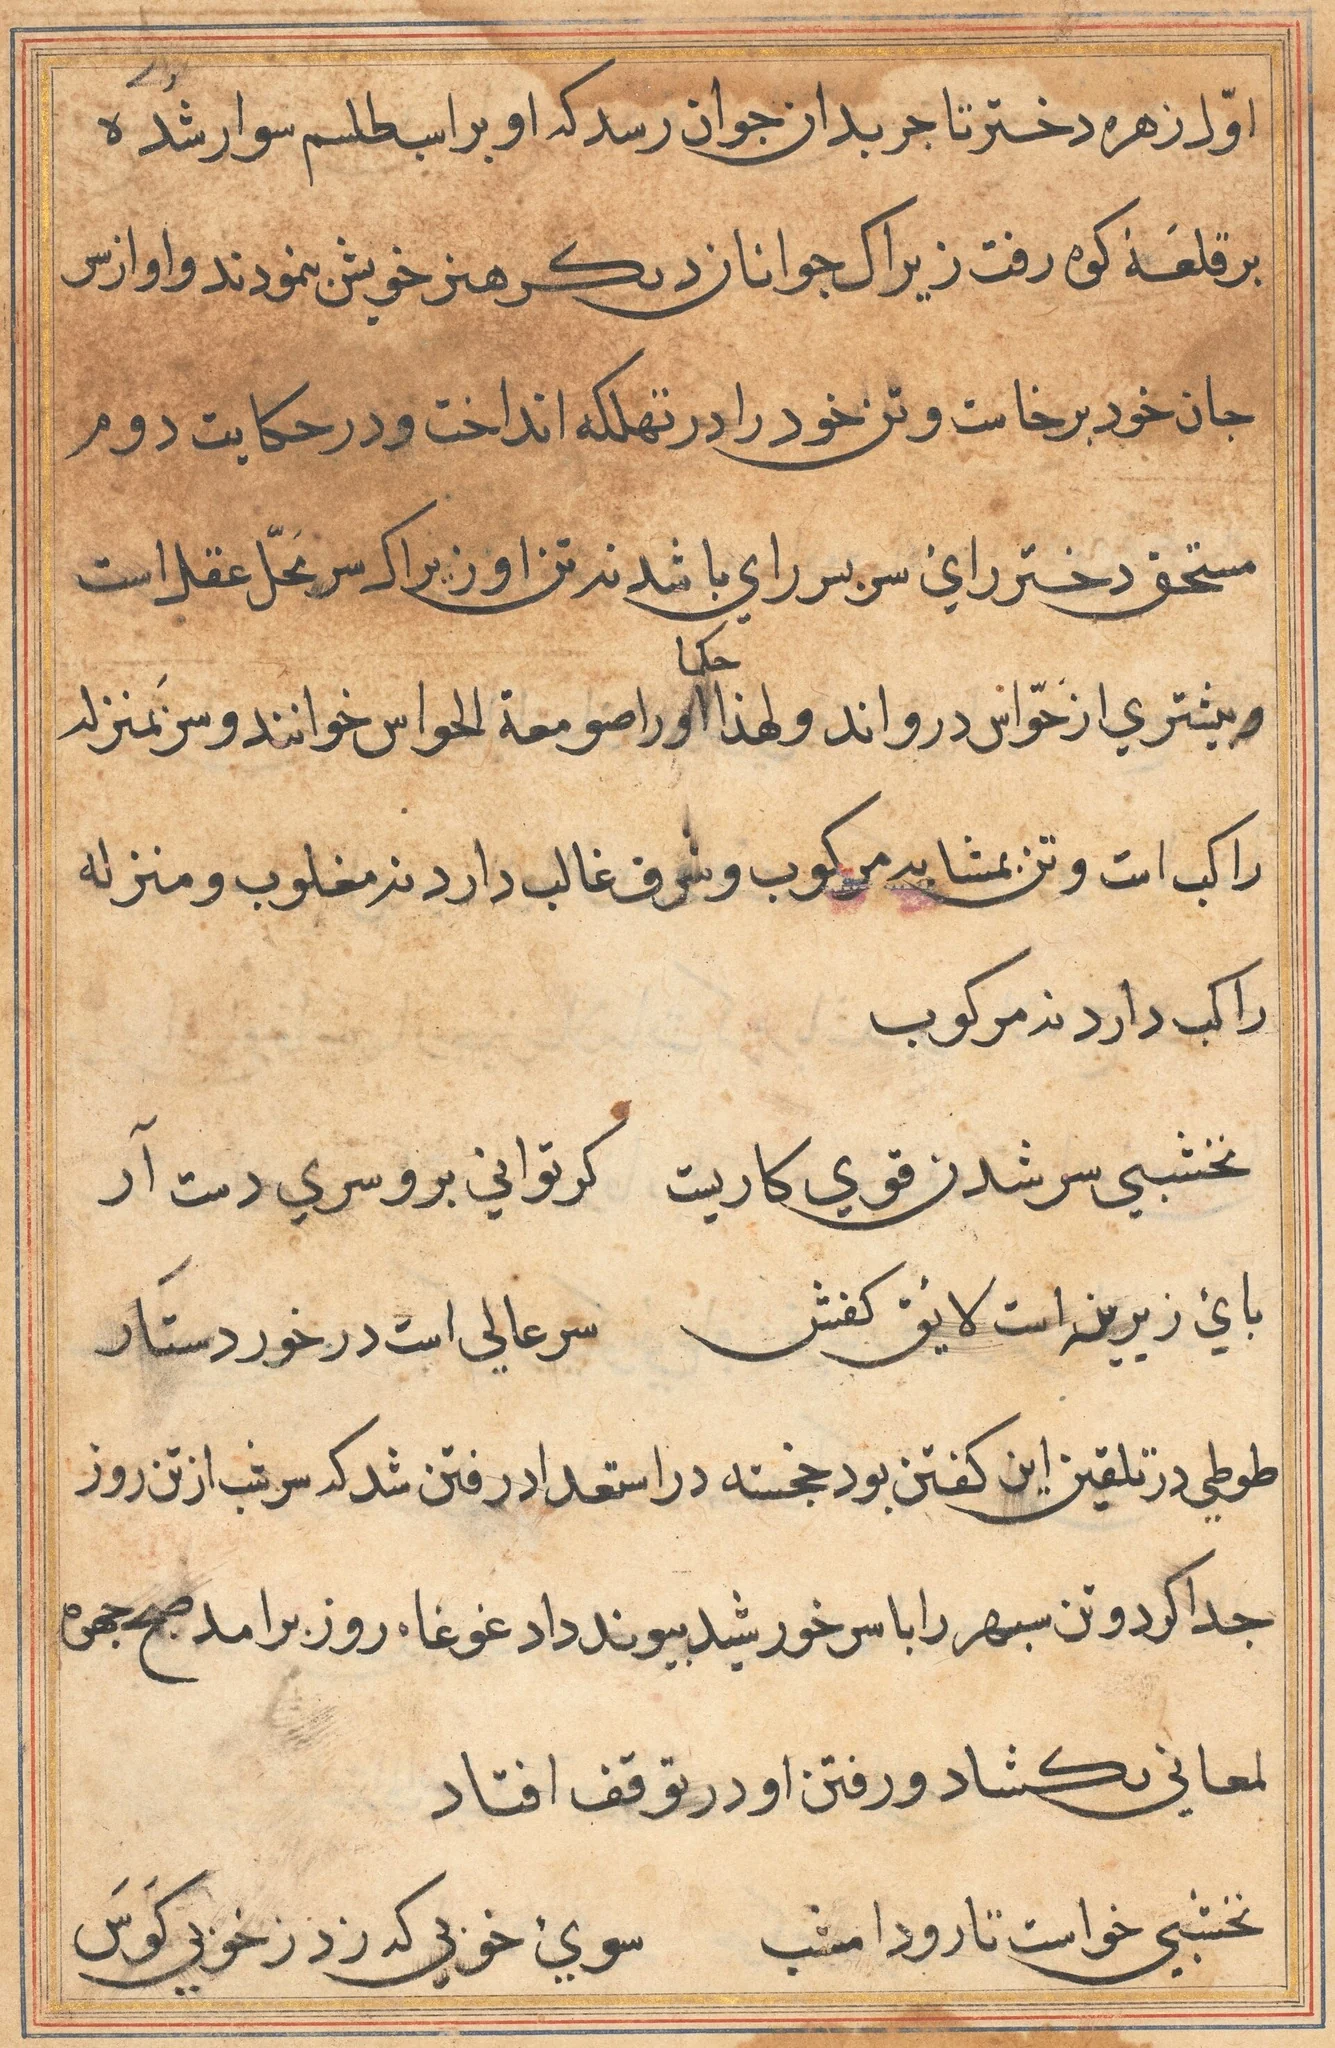 اوّل زهره دختر تاجر بدان جوان رسد که او بر اسب طلسم سوار شده
بر قلعهٔ کوه رفت زیراک جوانان دیکر هنر خویش بنمودند و او از سر
جان خود برخاست و تن خود را در تهلکه انداخت و در حکایت دوم
مستحق دختر رایٔ سر پسر رای باشد نه تن او زیراکه سر محَلّ عقل است
و بیشتری از حَوّاس درو اند و لهذا حکما او را صومعة الحواس خوانند و سر بَمنزله
راکب است و تن بمشابه مرکوب و شرف غالب دارد نه مغلوب و منزله
راکب دارد نه مرکوب
نخشبی سر شدن قوی کاریست کر توانی برو سری دست آر
پایٔ زیرین است لایٔق کفش سر عالی است در خور دستار
طوطی در تلقین این کفتن بود خجسته در استعداد رفتن شد که سر شب از تن روز
جدا کرد و تن سپهر را با سر خورشید پیوند داد غوغاء روز برامد صبح چهره
لمعانی بکشاد و رفتن او در توقف افتاد
نخشبی خواست تا رود امشب سویٔ خوبی که زد ز خوبی کَوسَ